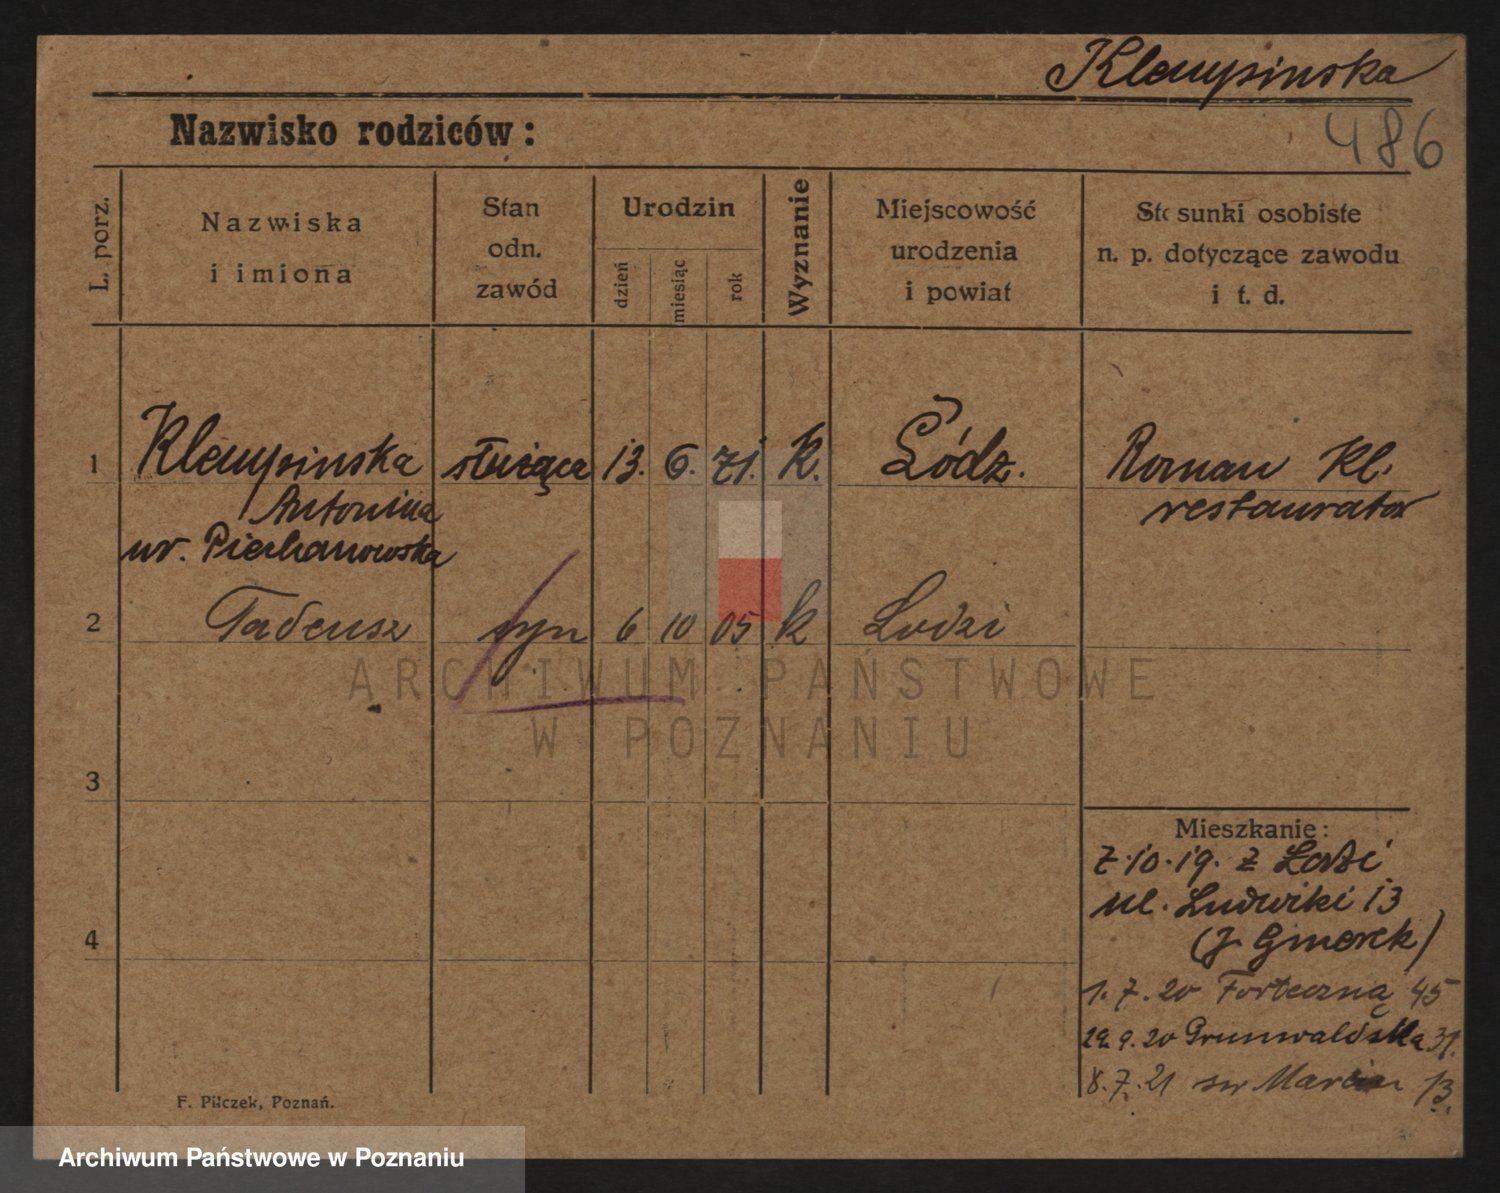 Klempinska
486
Nazwisko rodziców:
L. porz.
Nazwiska
i imiona
Stan
odn.
zawód
Urodzin
dzień
miesiąc
rok
Wyznanie
Miejscowość
urodzenia
i powiat
Stosunki osobiste
n. p. dotyczące zawodu
i t. d.
1 Klempinska służąca 13. 6. 71. k. Łódz. Roman Kl.
Antonina restaurator
ur. Piechanowska
2 Tadeusz syn 6 10 05 k Lodzi
ARCHIWUM PAŃSTWOWE
W POZNANIU
3
Mieszkanie:
7.10.19. z Łodzi
ul. Ludwiki 13
(J. Gmerek)
4
1.7.20 Forteczna 45
29.9.20 Grunwaldska 31.
8.7.21 sw Marcin 13.
F. Pilczek, Poznań.
Archiwum Państwowe w Poznaniu